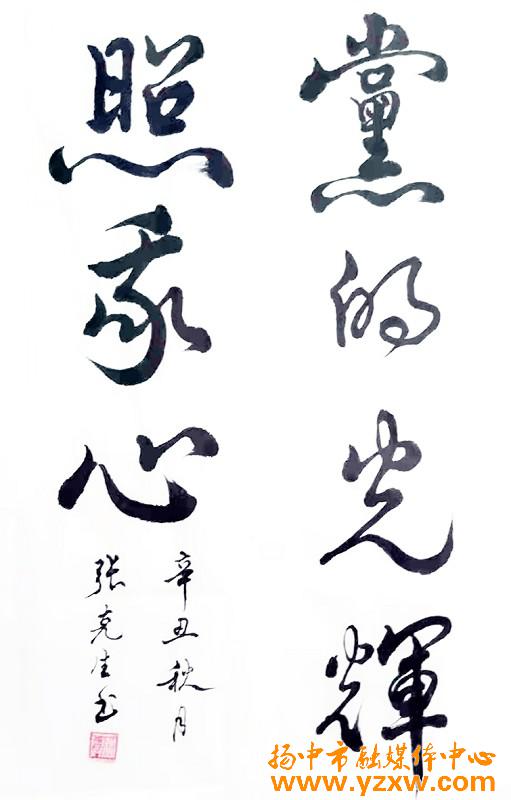 黨的光輝
照我心
辛丑秋月
张克生书
扬中市融媒体中心
www.yzxw.com